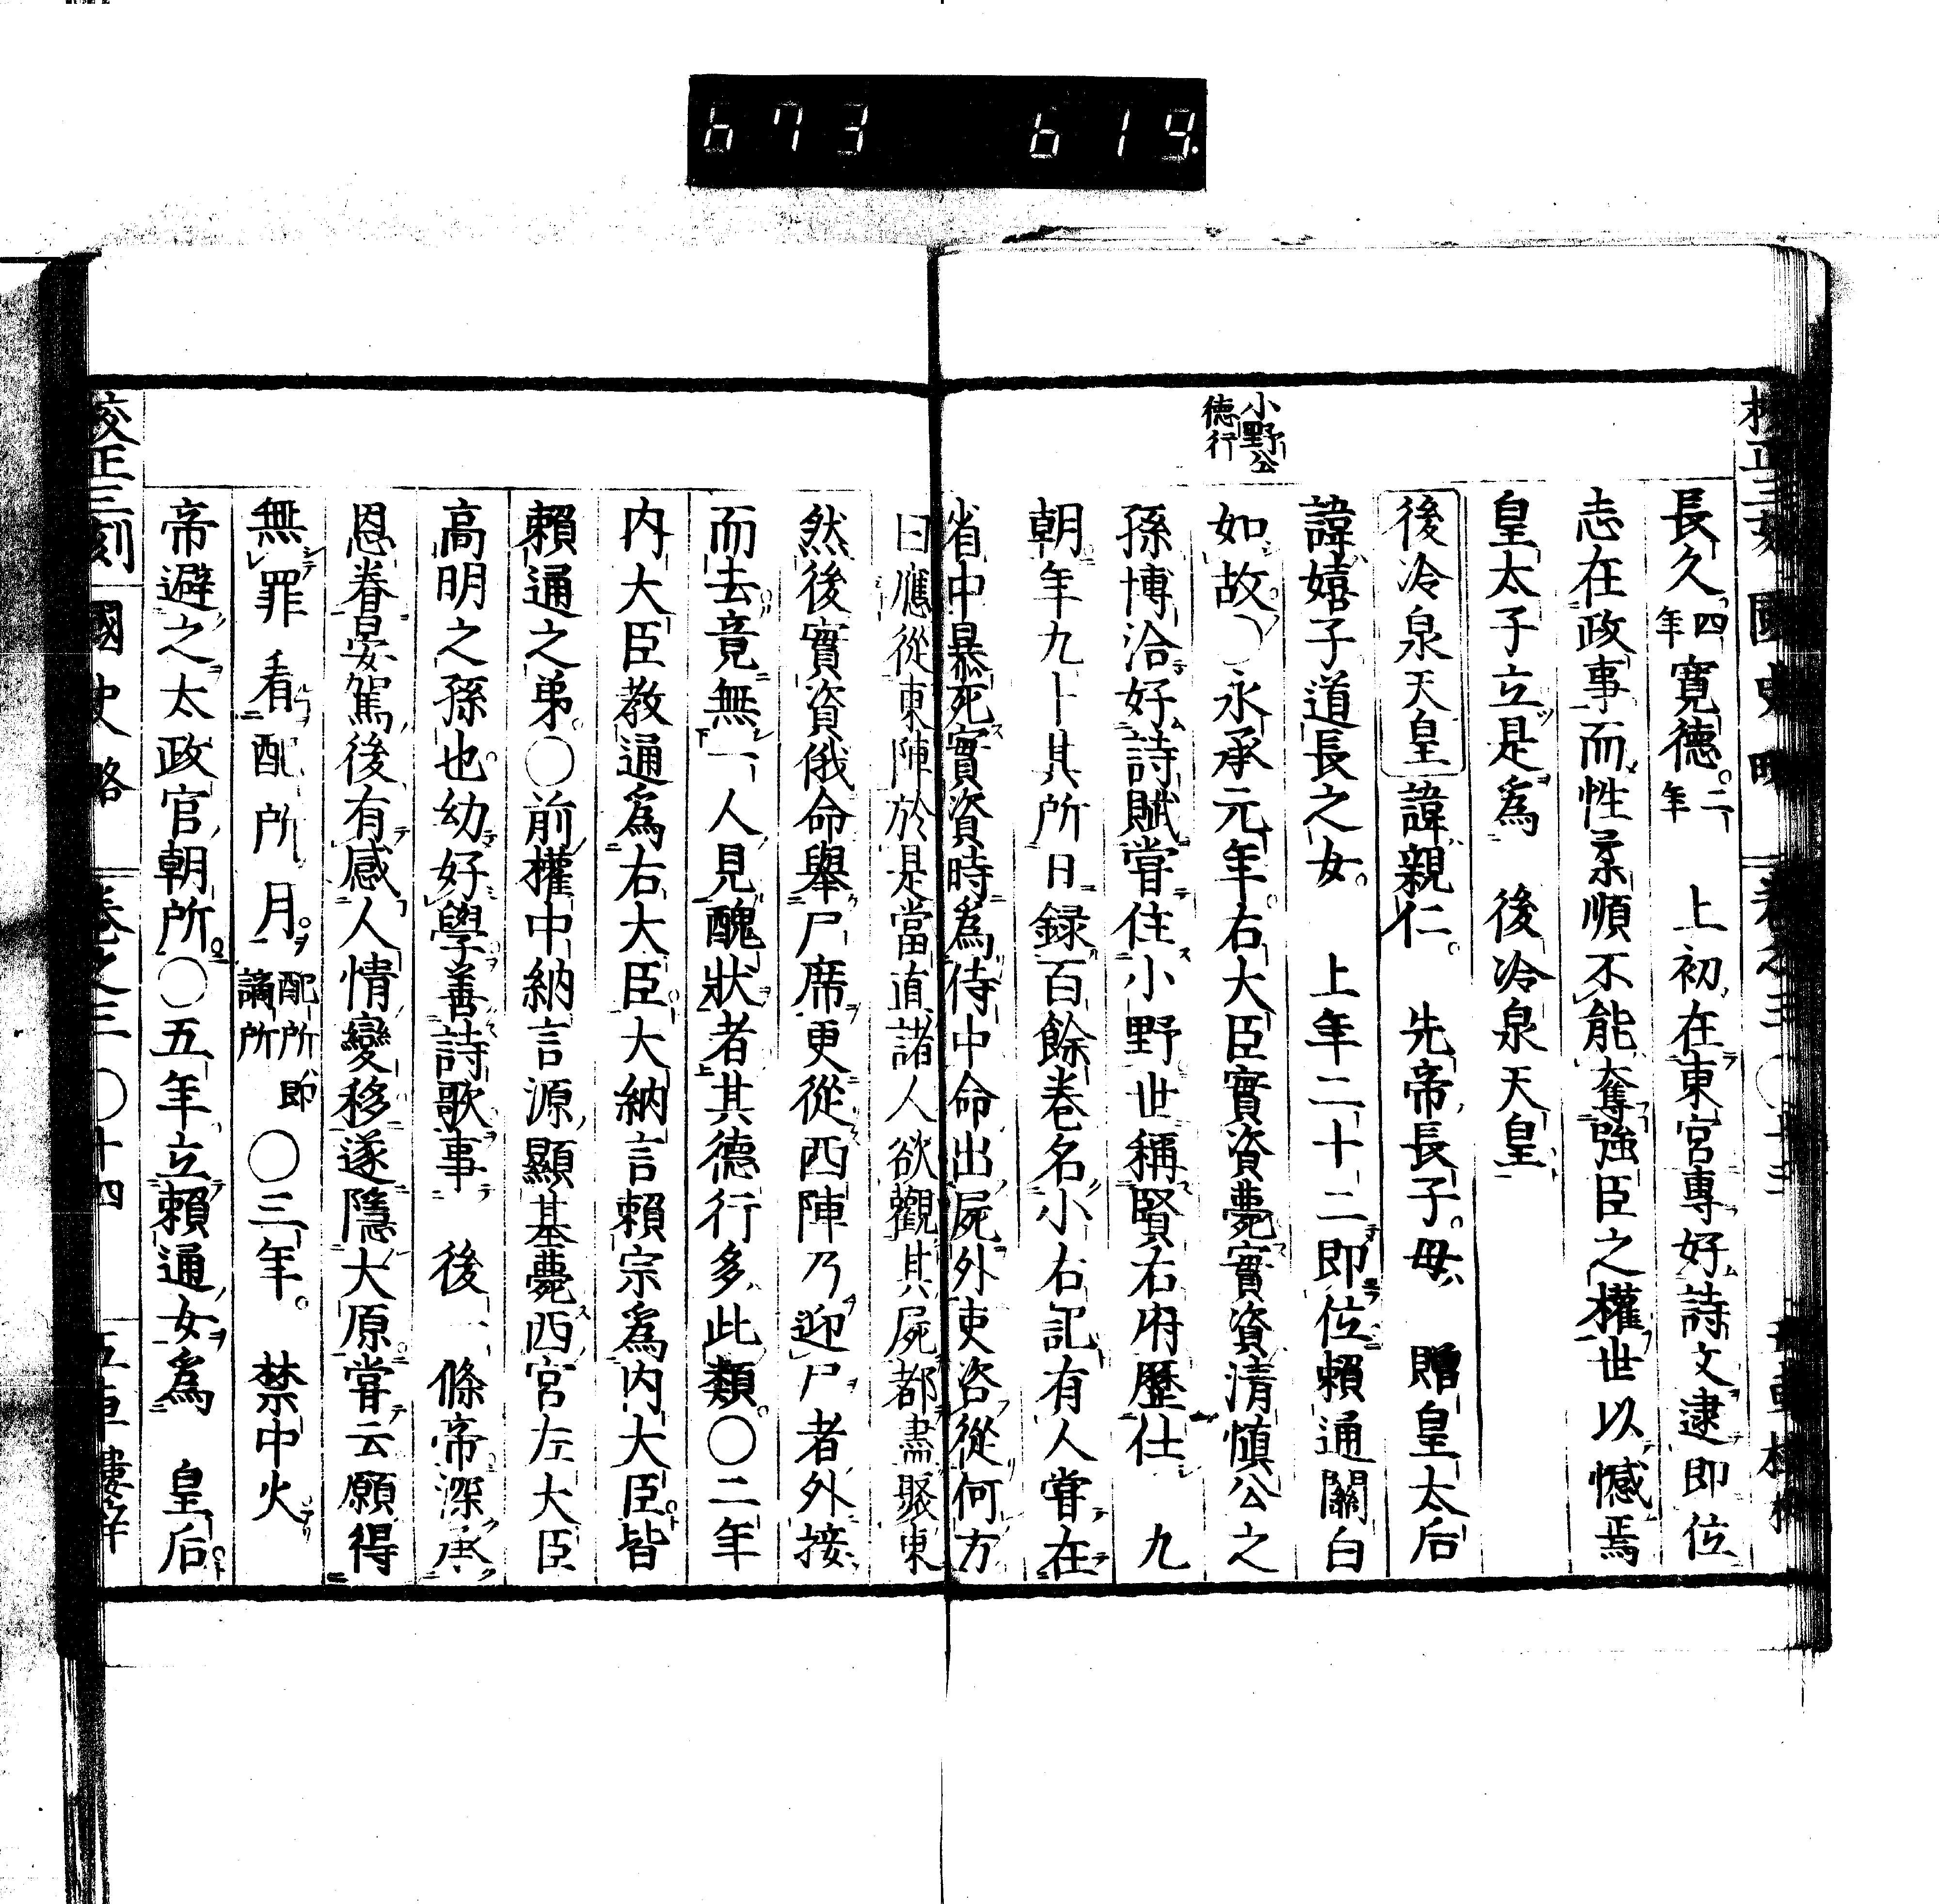 673 619.
小野公
德行
長久四年寬德二年 上初在東宮專好詩文逮即位
志在政事而性柔順不能奪強臣之權世以憾焉
皇太子立是爲 後冷泉天皇
後冷泉天皇諱親仁 先帝長子母 贈皇太后
諱嬉子道長之女 上年二十二即位賴通關白
如故〇永承元年右大臣實資薨實資清愼公之
孫博洽好詩賦甞住小野世稱賢右府歷仕 九
朝年九十其所日錄百餘卷名小右記有人甞在
省中暴死實資時爲侍中命出屍外吏咨從何方
曰應從東陣於是當直諸人欲觀其屍都盡聚東
然後實資俄命舉尸席更從西陣乃迎尸者外接
而去竟無一人見醜狀者其德行多此類〇二年
內大臣教通爲右大臣大納言賴宗爲內大臣皆
賴通之弟〇前權中納言源顯基薨西宮左大臣
高明之孫也幼好學善詩歌事 後一條帝深承
恩眷晏駕後有感人情變移遂隱大原甞云願得
無罪看配所月配所即謫所〇三年 禁中火
帝避之太政官朝所〇五年立賴通女爲 皇后
校正三刻 國史略 卷之三 〇十四 五車樓梓